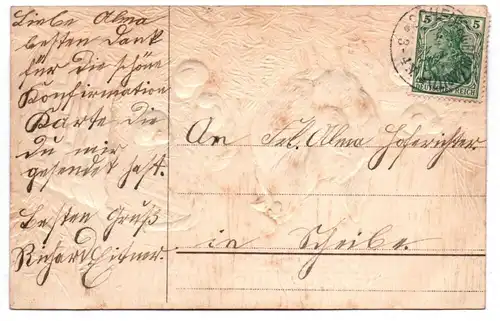 Liebe Alma
besten Dank
für die schöne
Konfirmation
Karte die
du mir
gesendet hast.
Besten Gruß
Richard
An Frl. Alma Hoferichter
in Scheibe.
5 5
DEUTSCHES REICH